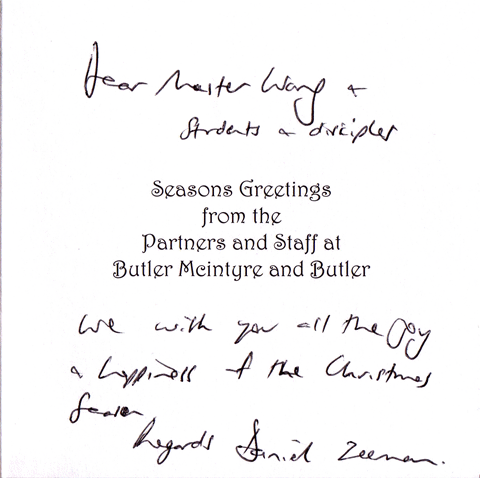 Dear Master Wang &
Students & disciples
Seasons Greetings
from the
Partners and Staff at
Butler Mcintyre and Butler
We wish you all the joy
& happiness of the Christmas
Season
Regards Daniel Zeeman.